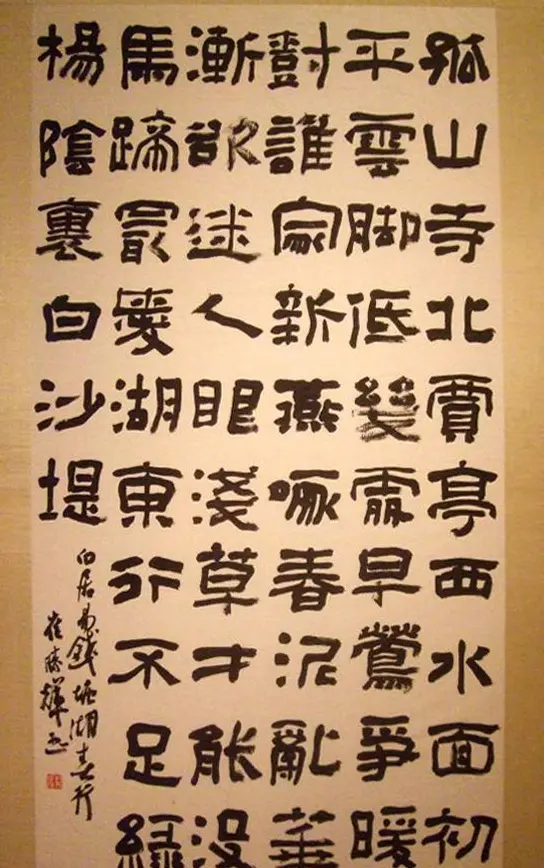 孤山寺北賈亭西水面初
平雲脚低幾處早鶯爭暖
樹誰家新燕啄春泥亂華
漸欲迷人眼淺草才能沒
馬蹄最愛湖東行不足綠
楊陰裏白沙堤
白居易錢塘湖春行
崔勝輝書